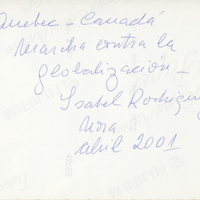 Quebec - Canadá
Marcha contra la
globalización -
Isabel Rodríguez
Mora
abril 2001